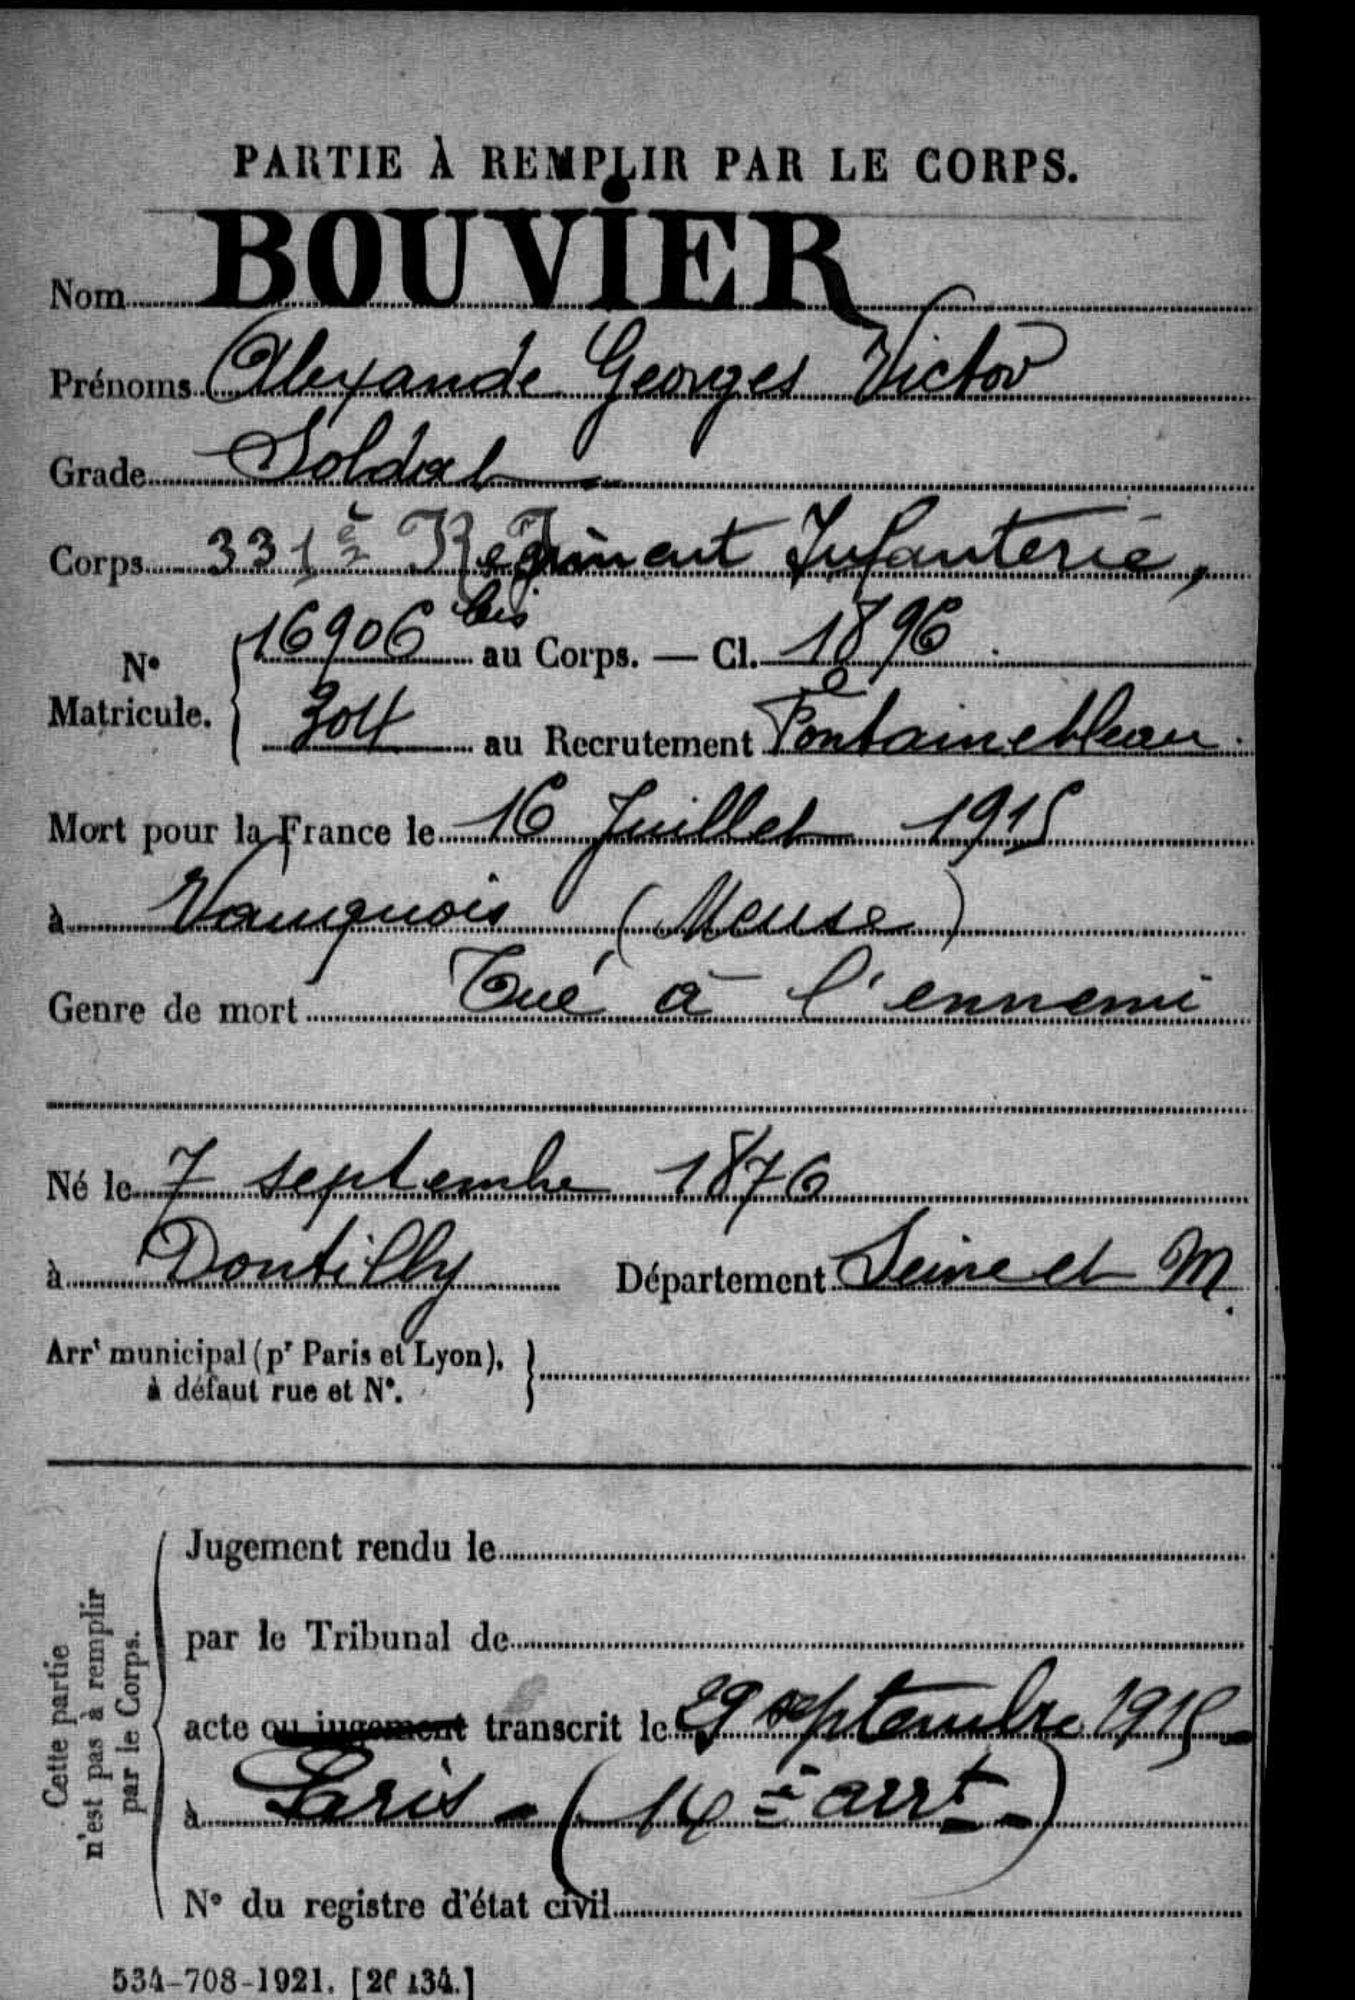 PARTIE À REMPLIR PAR LE CORPS.
Nom BOUVIER
Prénoms Alexande Georges Victor
Grade Soldat
Corps 331è Régiment Infanterie,
N° Matricule. 16906 bis au Corps. — Cl. 1896
304 au Recrutement Fontainebleau.
Mort pour la France le 16 Juillet 1915
à Vauquois (Meuse)
Genre de mort Tué à l'ennemi
Né le 7 septembre 1876
à Dontilly Département Seine et M.
Arrt municipal (pr Paris et Lyon),
à défaut rue et N°.
Cette partie
n'est pas à remplir
par le Corps.
Jugement rendu le
par le Tribunal de
acte ou jugement transcrit le 29 septembre 1915
à Paris - (14è arrt -)
N° du registre d'état civil
534-708-1921. [26134.]